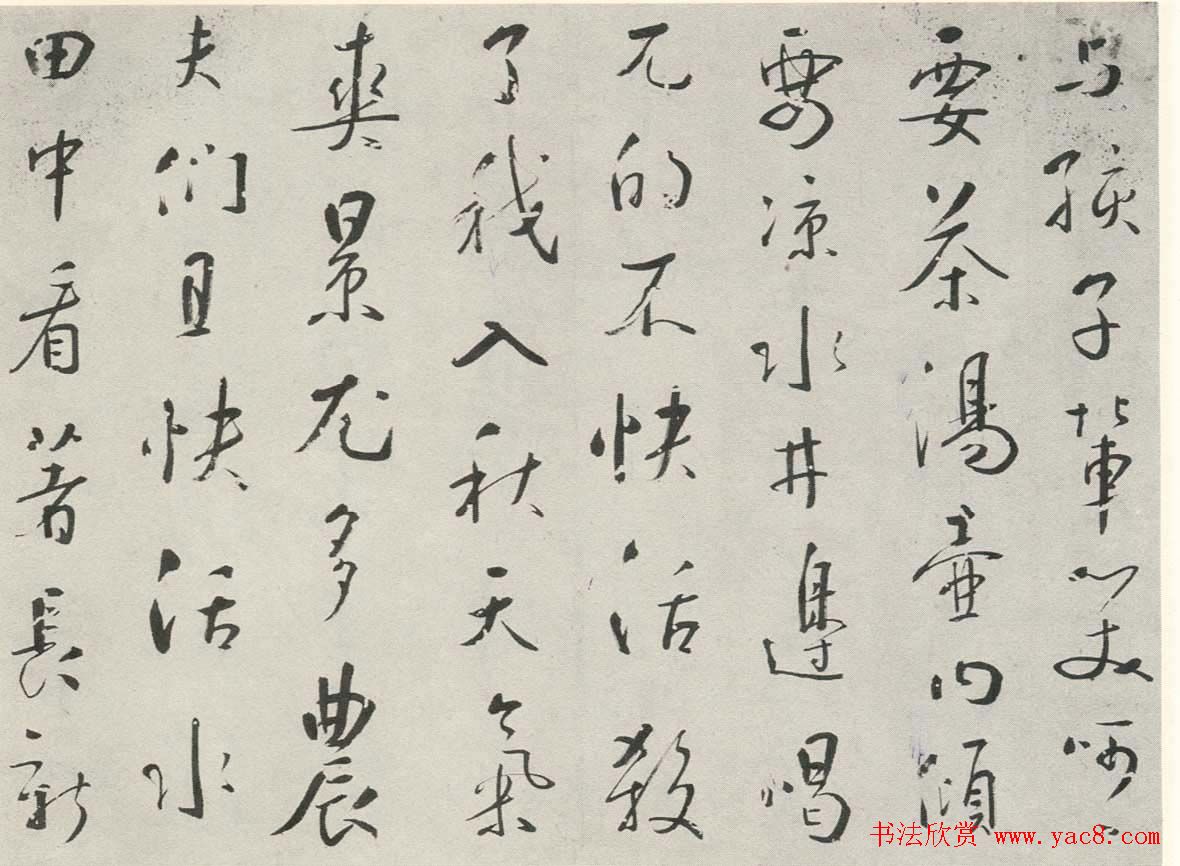 与孩子輩笑呵〻
要茶湯壺内傾
要凉水井邊喝
兀的不快活殺
了我入秋天氣
爽景尤多農
夫們且快活水
田中看著長新
书法欣赏 www.yac8.com